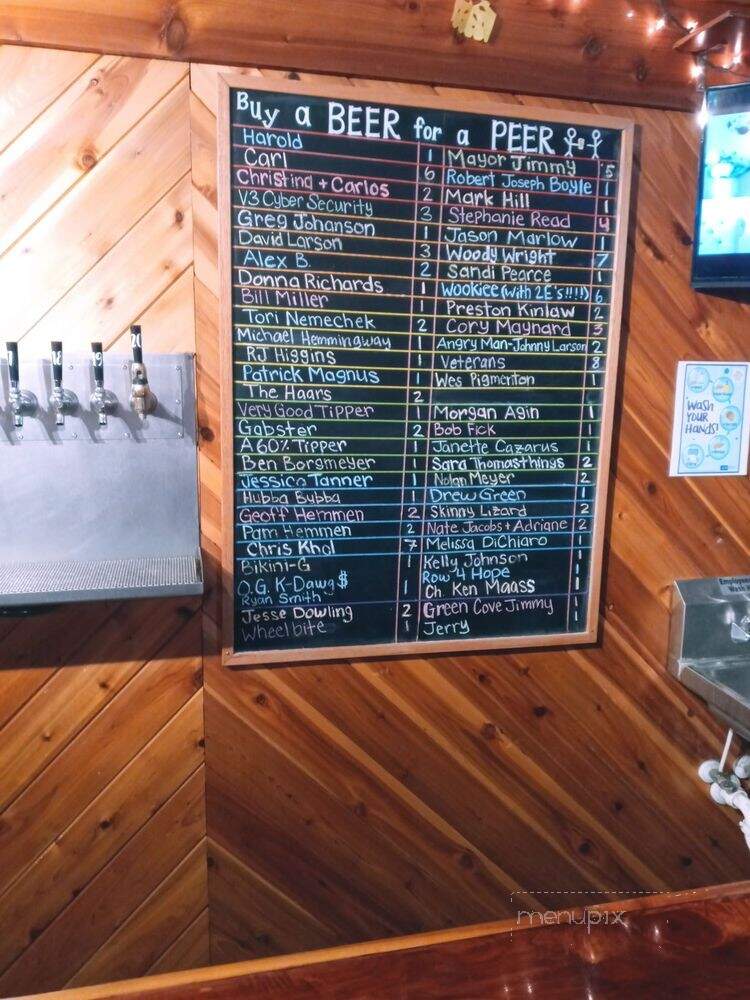 Buy a BEER for a PEER
Harold 1
Carl 6
Christina + Carlos 2
V3 Cyber Security 3
Greg Johanson
David Larson 3
Alex B. 2
Donna Richards 1
Bill Miller
Tori Nemechek 2
Michael Hemmingway 1
RJ Higgins 1
Patrick Magnus 1
The Haars 2
Very Good Tipper 1
Gabster 2
A 60% Tipper 1
Ben Borgmeyer 1
Jessica Tanner 1
Hubba Bubba 1
Geoff Hemmen 2
Pam Hemmen 2
Chris Khol 7
Bikini-G 1
O.G. K-Dawg $ 1
Ryan Smith 1
Jesse Dowling 2
Wheelbite 1
Mayor Jimmy 5
Robert Joseph Boyle 1
Mark Hill 1
Stephanie Read 4
Jason Marlow 1
Woody Wright 7
Sandi Pearce 1
Wookiee (with 2E's!!!!) 6
Preston Kinlaw 2
Cory Maynard 3
Angry Man-Johnny Larson 2
Veterans 8
Wes Pigmeriton 1
Morgan Agin 1
Bob Fick 1
Janette Cazarus 1
Sara Thomasthings 2
Nolan Meyer 2
Drew Green 1
Skinny Lizard 2
Nate Jacobs + Adriane 2
Melissa DiChiaro 1
Kelly Johnson 1
Row 4 Hope 1
Ch. Ken Maass 1
Green Cove Jimmy 1
Jerry 1
18
19
20
WASH
YOUR
HANDS!
menupix